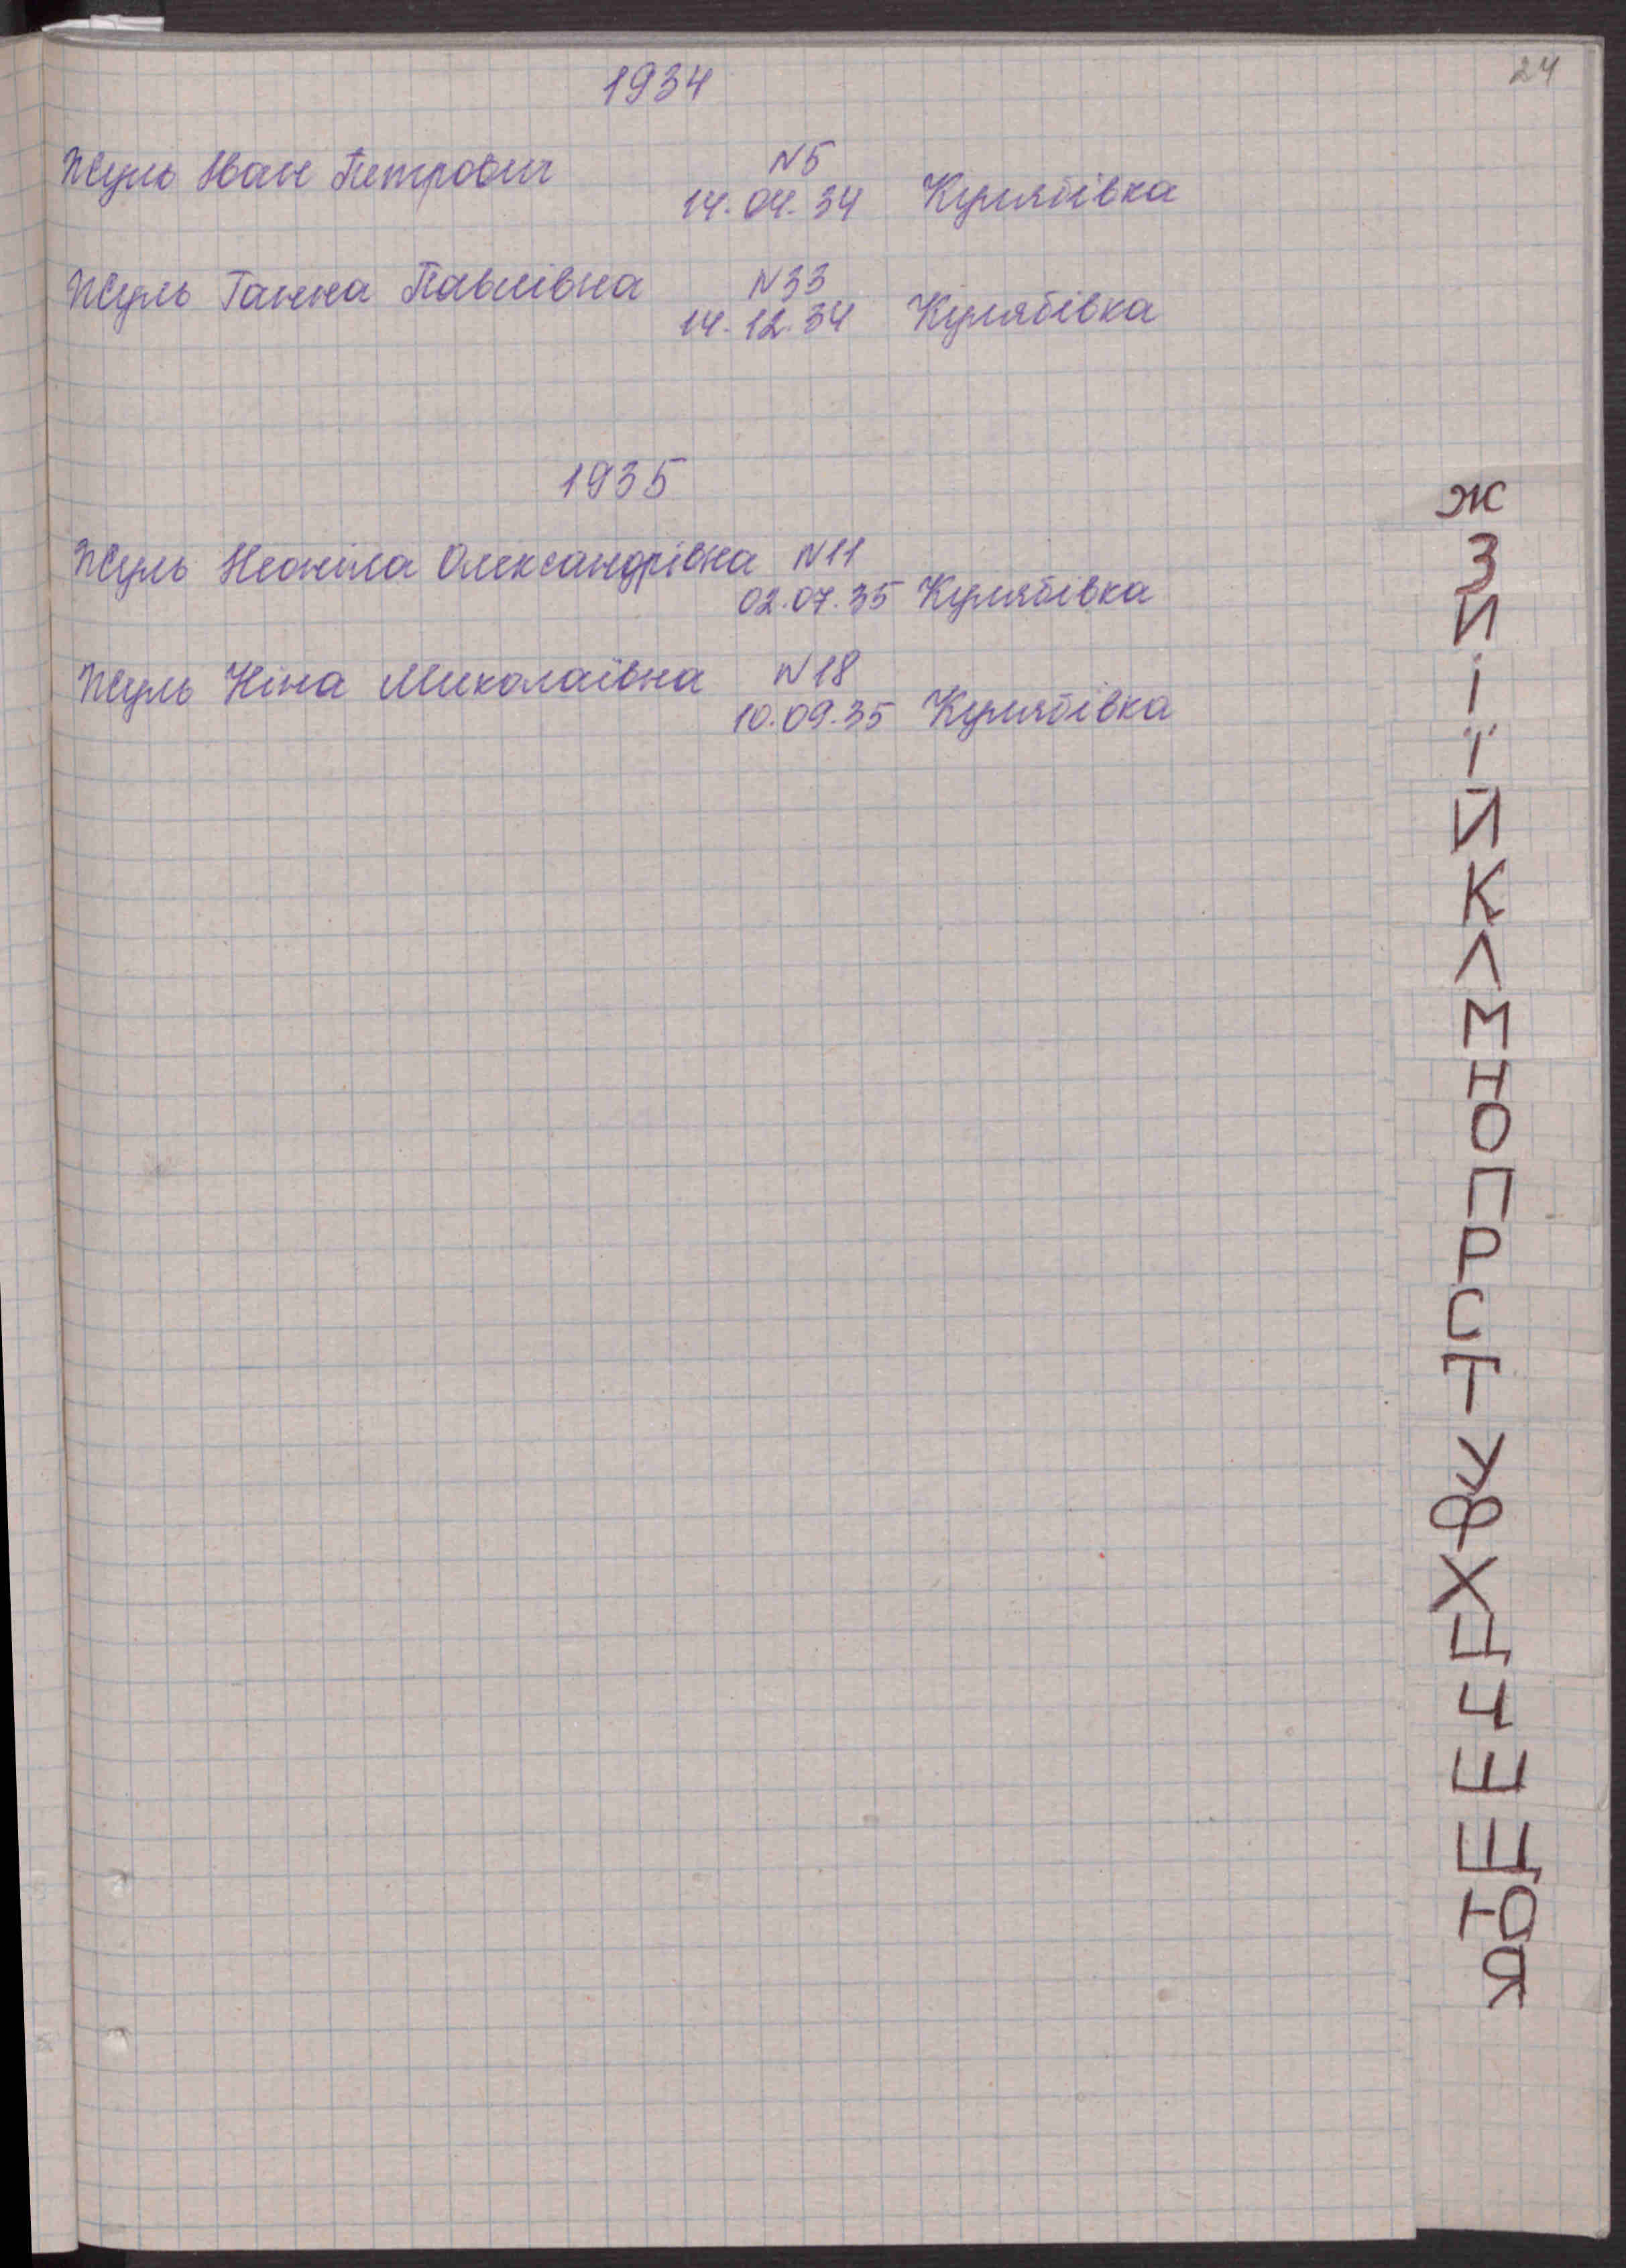 24
1934
Жуль Іван Петрович N5
14.04.34 Кулябівка
Жуль Ганна Павлівна N33
14.12.34 Кулябівка
1935
Жуль Неоніла Олександрівна N11
02.07.35 Кулябівка
Жуль Ніна Миколаївна N18
10.09.35 Кулябівка
Ж
З
И
І
Ї
Й
К
Л
М
Н
О
П
Р
С
Т
У
Ф
Х
Ц
Ч
Ш
Щ
Ю
Я